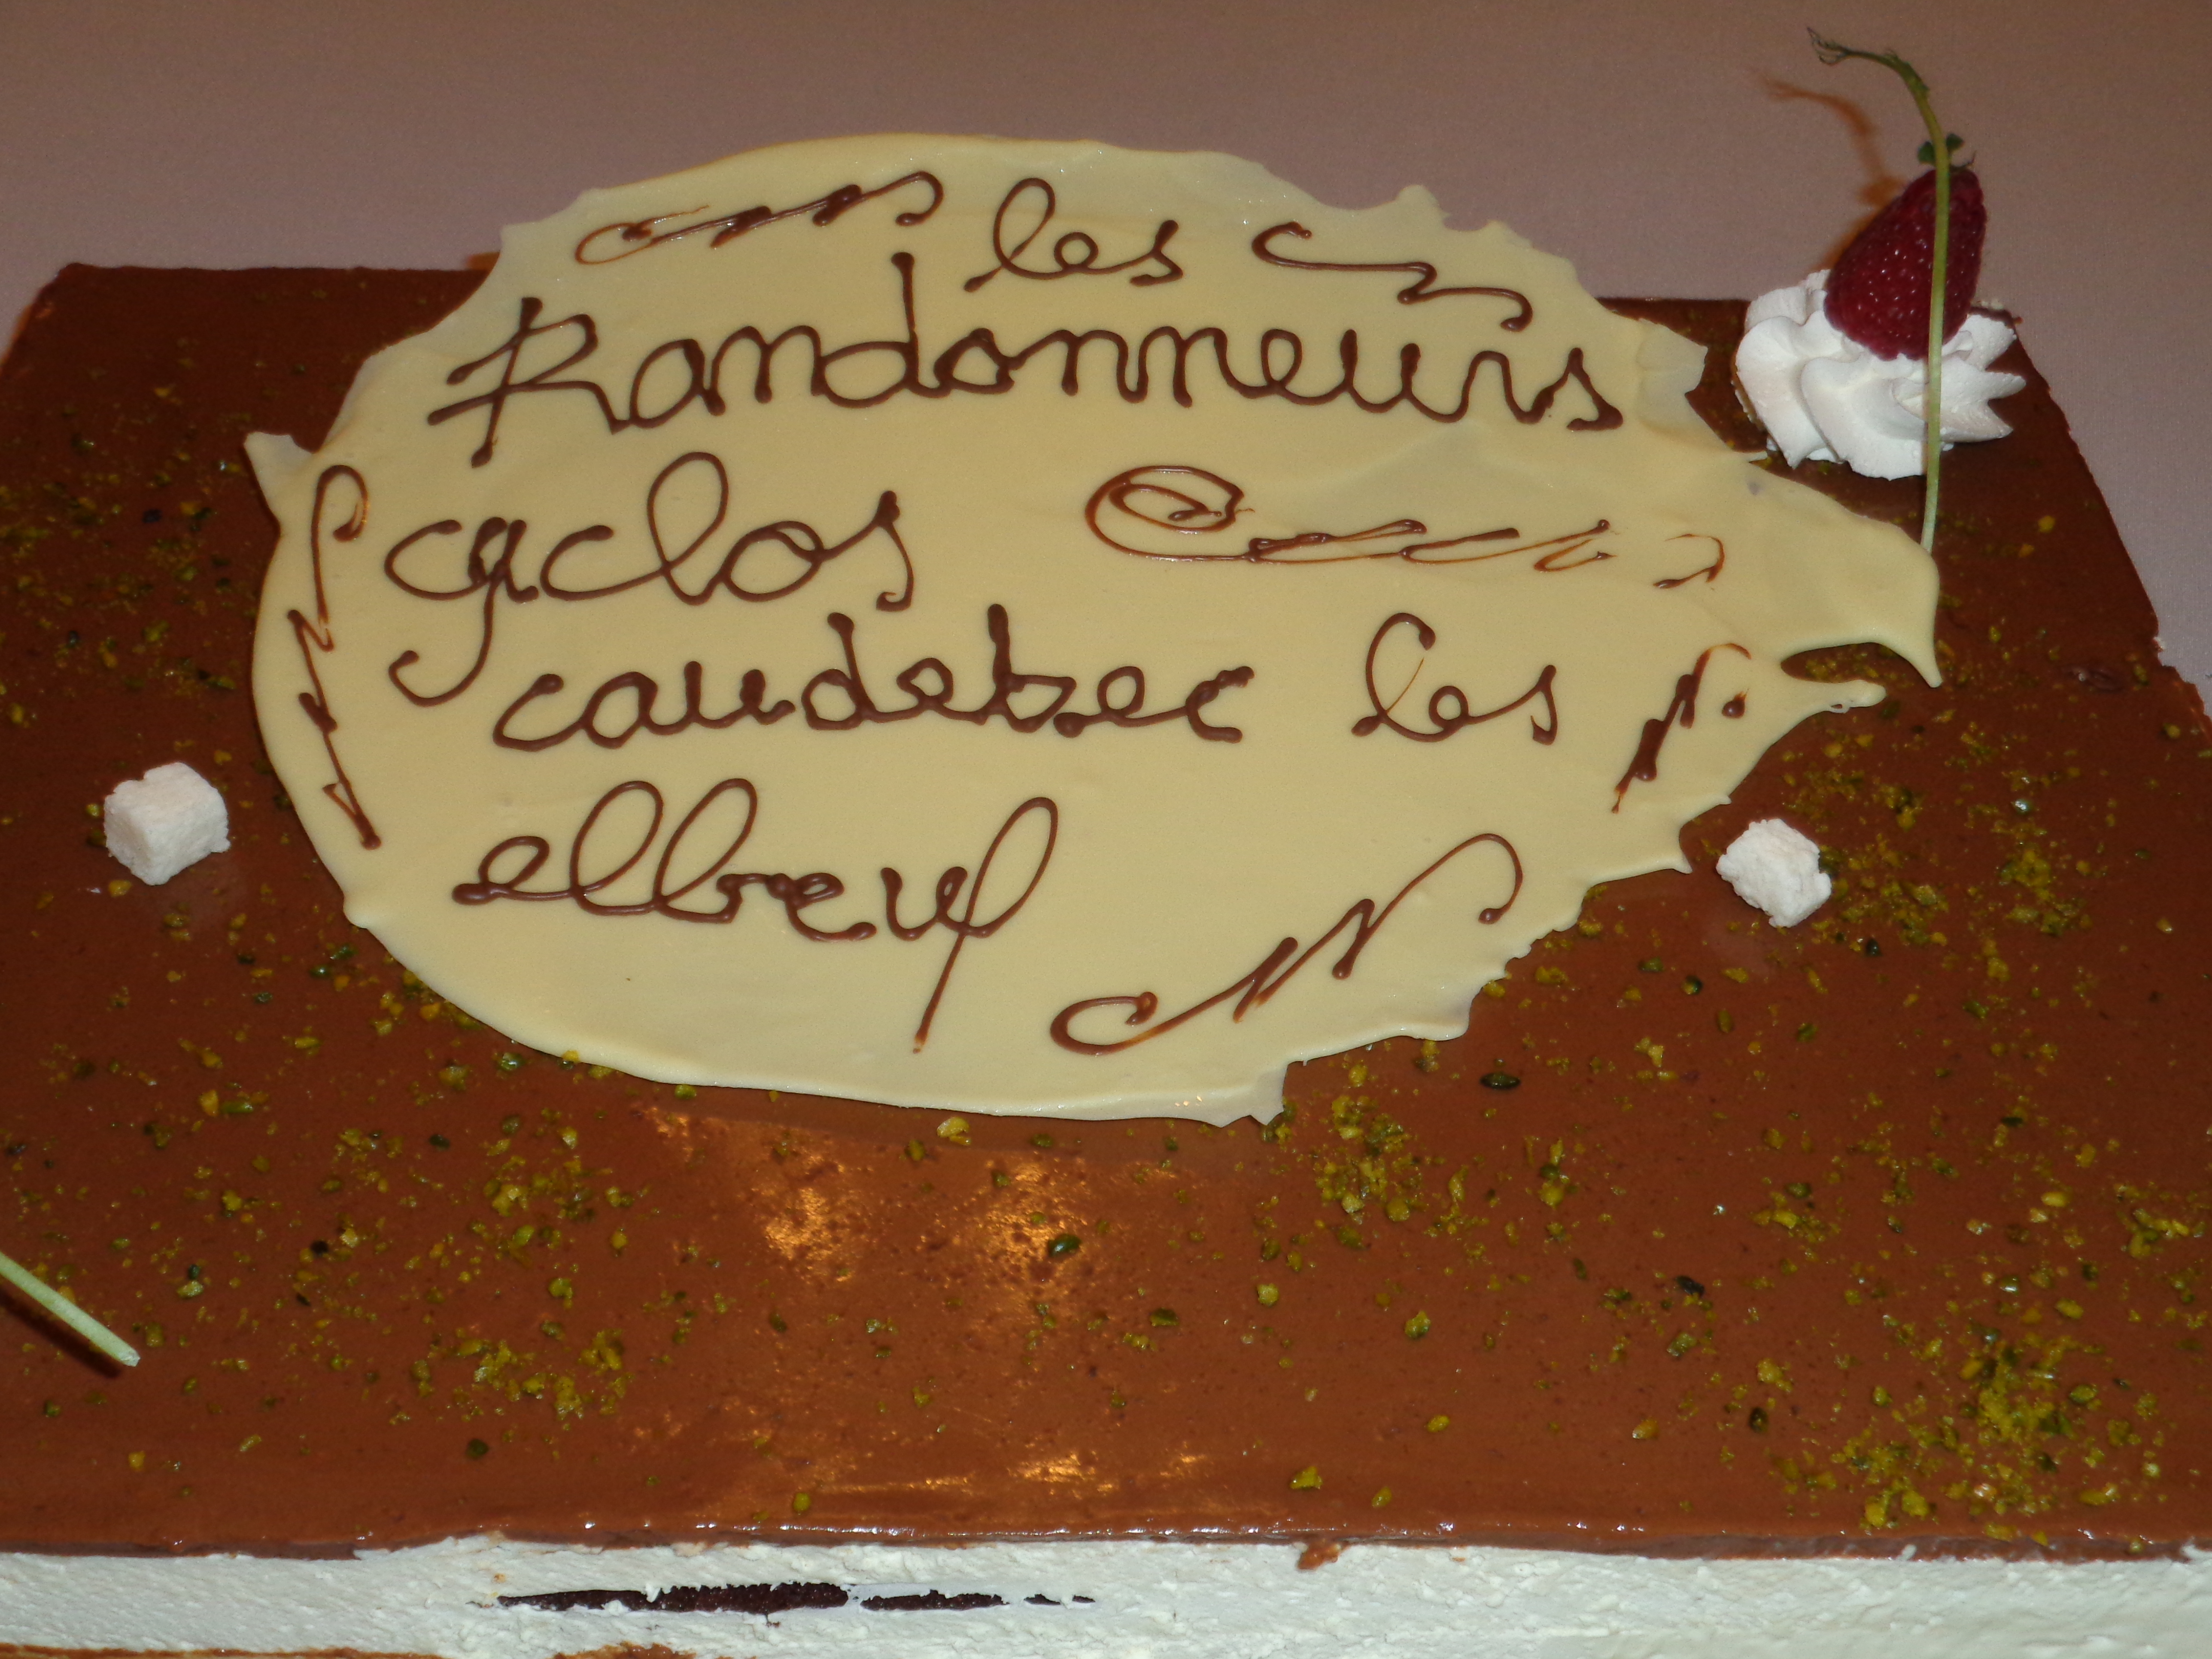 les
Randonneurs
cyclos
caudebec les
elbeuf